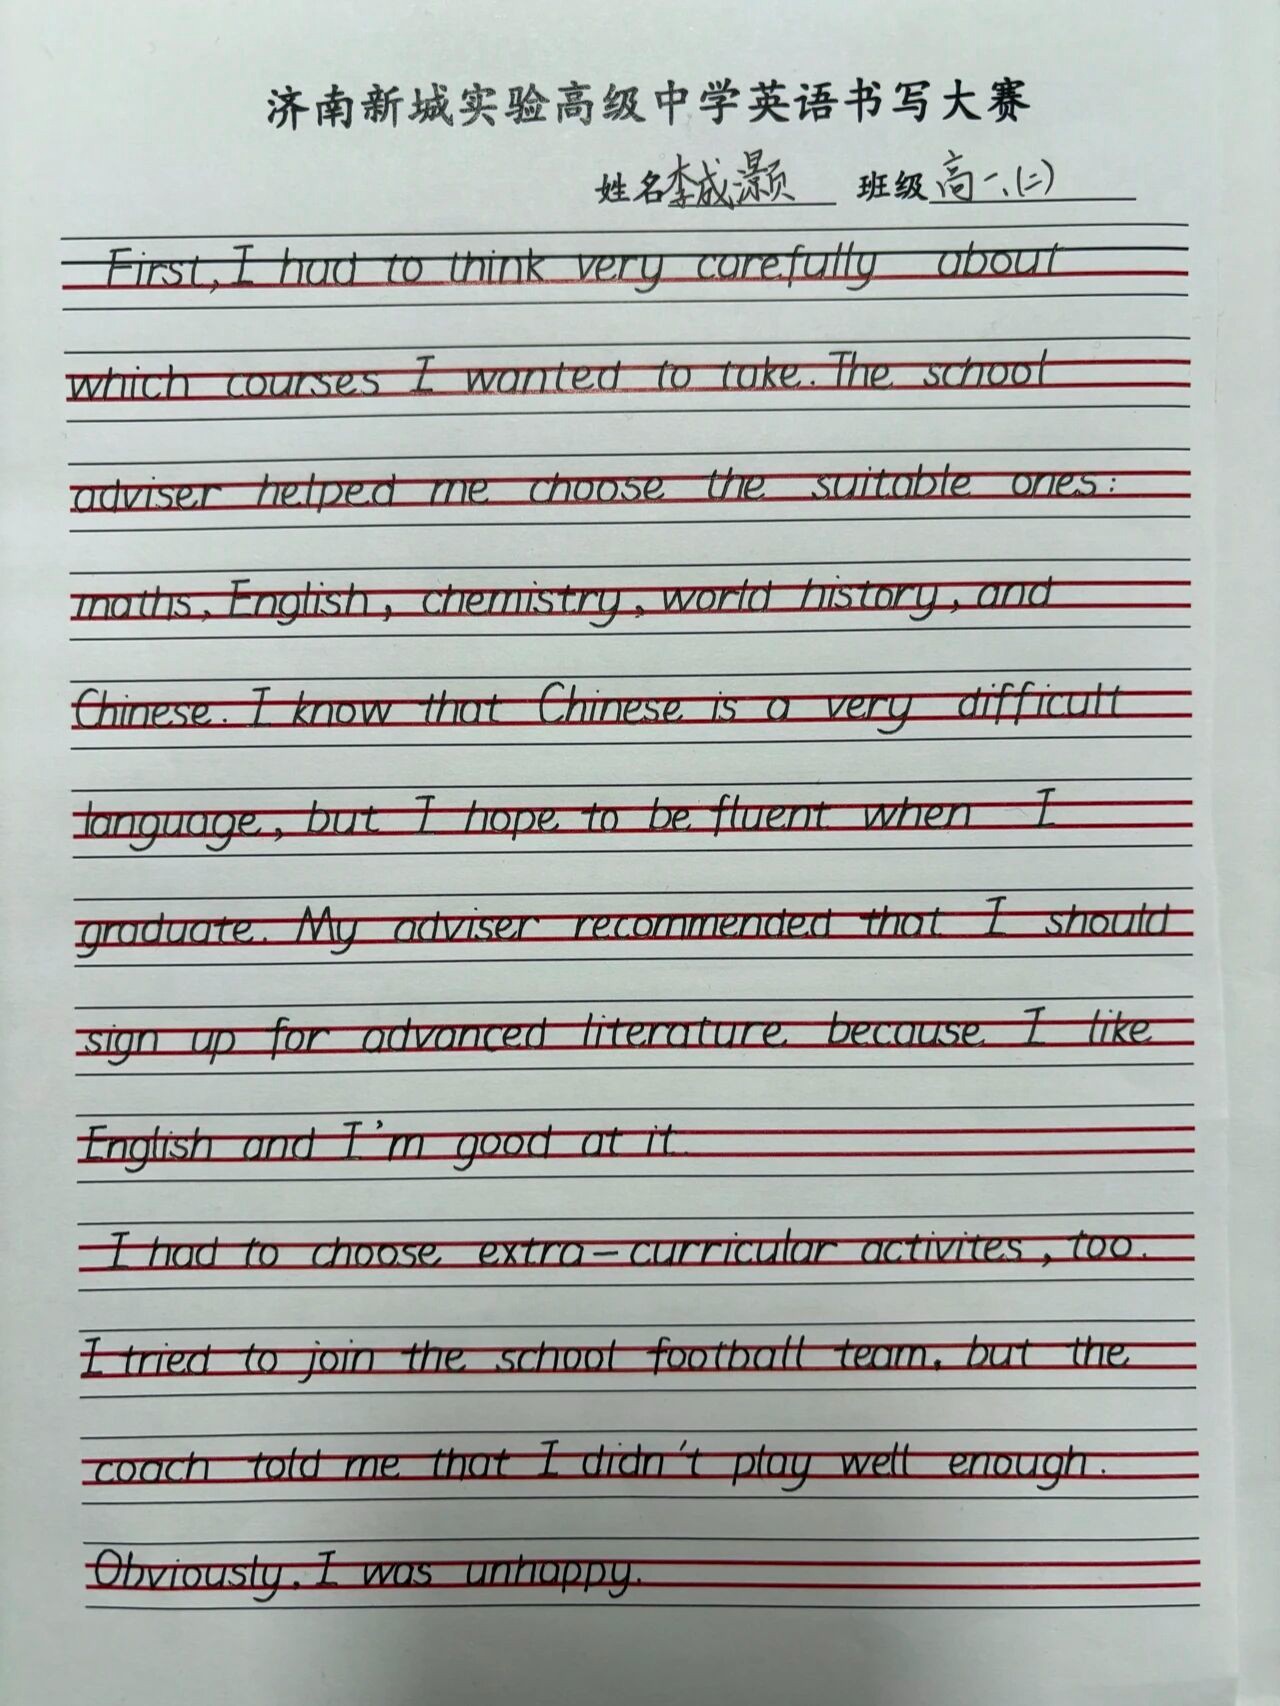 济南新城实验高级中学英语书写大赛
姓名李成灏 班级高一、(二)
First, I had to think very carefully about
which courses I wanted to take. The school
adviser helped me choose the suitable ones:
maths, English, chemistry, world history, and
Chinese. I know that Chinese is a very difficult
language, but I hope to be fluent when I
graduate. My adviser recommended that I should
sign up for advanced literature because I like
English and I'm good at it.
I had to choose extra-curricular activites, too.
I tried to join the school football team, but the
coach told me that I didn't play well enough.
Obviously, I was unhappy.